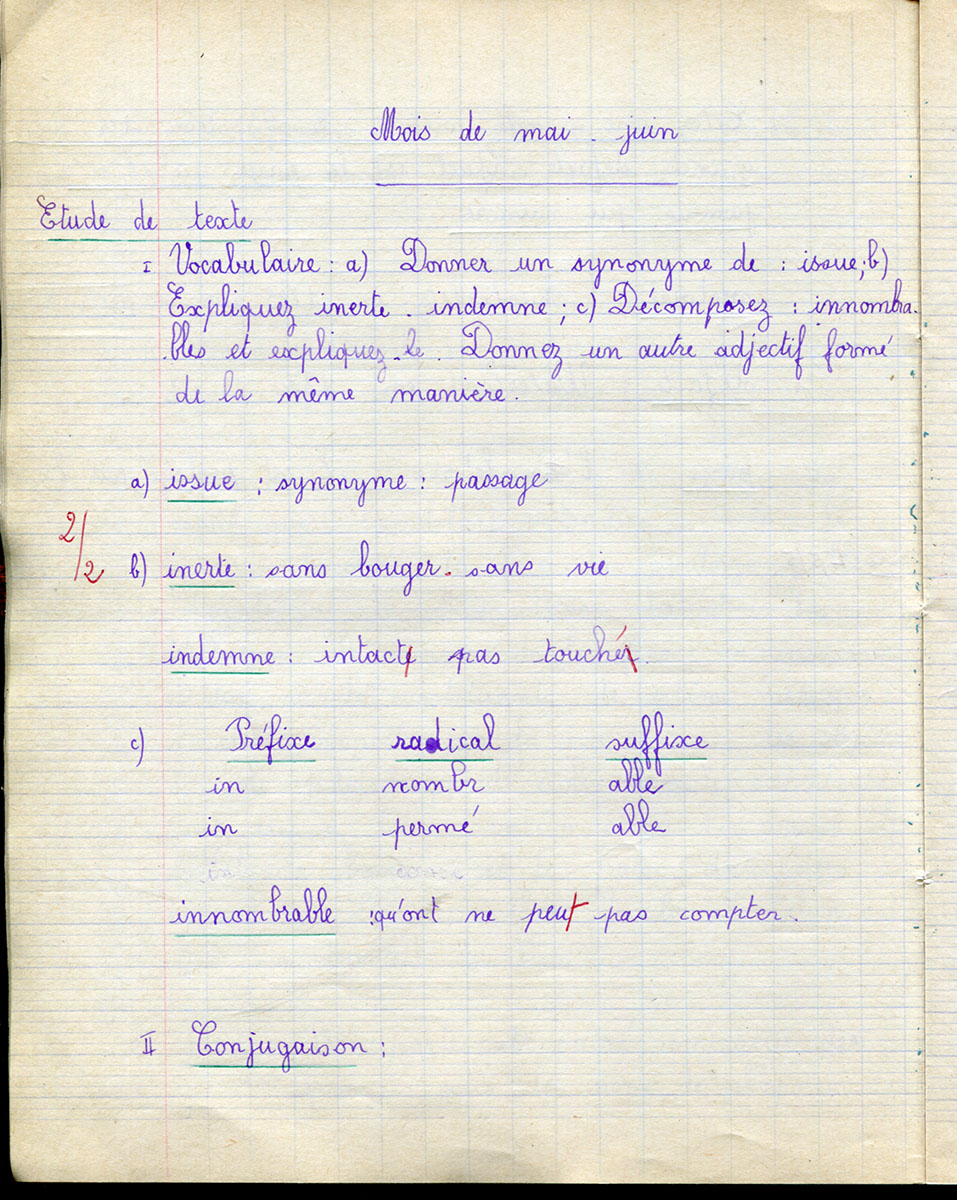 Mois de mai. juin
Etude de texte
I Vocabulaire : a) Donner un synonyme de : issue ; b)
Expliquez inerte. indemne ; c) Décomposez : innombra.
.bles et expliquez-le. Donnez un autre adjectif formé
de la même manière.
a) issue : synonyme : passage
2/2
b) inerte : sans bouger. sans vie
indemne : intacte pas touché.
c) Préfixe radical suffixe
in nombr able
in permé able
innombrable : qu'ont ne peut pas compter.
II Conjugaison :